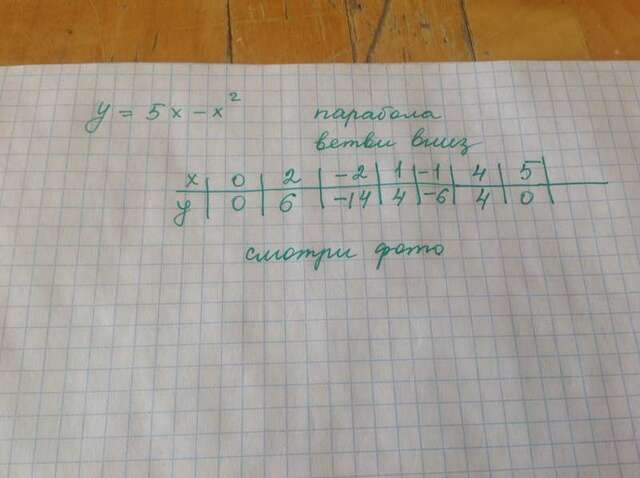 y = 5x - x² парабола
ветви вниз
x | 0 | 2 | -2 | 1 | -1 | 4 | 5 |
y | 0 | 6 | -14 | 4 | -6 | 4 | 0 |
смотри фото